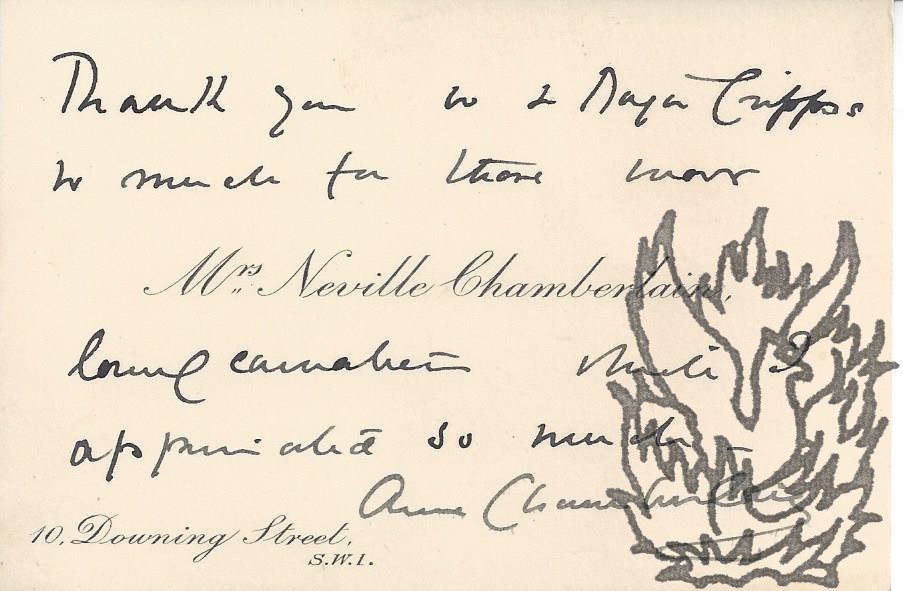 Thank you & Major Cripps
so much for those most
Mrs. Neville Chamberlain,
lovely carnations which I
appreciated so much –
Anne Chamberlain
10, Downing Street,
S.W.1.